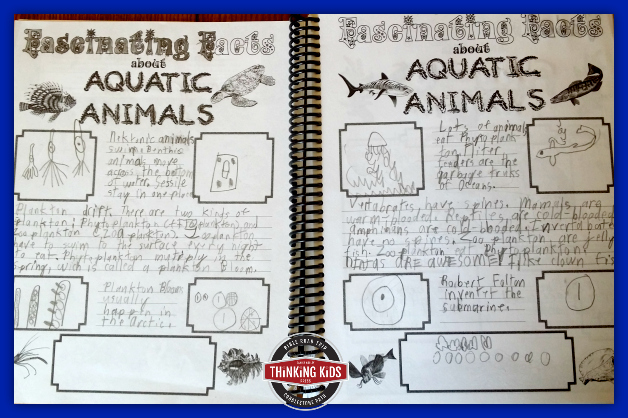 Fascinating Facts
about
AQUATIC
ANIMALS
Nektonic animals
swim. Benthic
animals move
across the bottom
of water. Sessile
stay in one place
Plankton drift. There are two kinds of
plankton: Phytoplankton
plankton
have to swim to the surface every night
to eat. Phytoplankton multiply in the
spring, wich is called a plankton Bloom.
Plankton Bloom
usually
happen in
the Arctic.
Fascinating Facts
about
AQUATIC
ANIMALS
Lots of animals
eat Phytoplank
ton. Filter
fenders are the
garbage truks
of Oceans.
Vertabrates have spines. Mamals are
warm-blooded. Reptiles are cold-blooded
amphibians are cold-blooded. Invertabrates
have no spines. Zoo plankton are jelly
fish. Zoo plankton Phytoplankton
AWESOME! like clown fis
Robert Fulton
inventit the
submarine.
BIBLE ROAD TRIP
THiNKiNG KiDS
PRESS